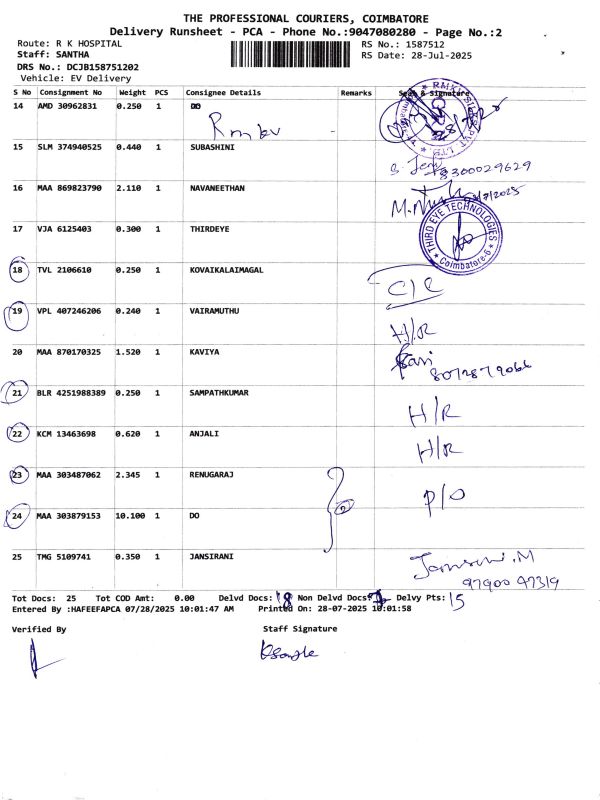 THE PROFESSIONAL COURIERS, COIMBATORE
Delivery Runsheet - PCA - Phone No.:9047080280 - Page No.:2
Route: R K HOSPITAL
Staff: SANTHA
DRS No.: DCJB158751202
Vehicle: EV Delivery
RS No.: 1587512
RS Date: 28-Jul-2025
S No Consignment No Weight PCS Consignee Details Remarks Seal & Signature
14 AMD 30962831 0.250 1 DO
Rmkv
15 SLM 374940525 0.440 1 SUBASHINI
8300029629
16 MAA 869823790 2.110 1 NAVANEETHAN
17 VJA 6125403 0.300 1 THIRDEYE
THIRD EYE TECHNOLOGIES
Coimbatore-6
18 TVL 2106610 0.250 1 KOVAIKALAIMAGAL
C/C
19 VPL 407246206 0.240 1 VAIRAMUTHU
H/R
20 MAA 870170325 1.520 1 KAVIYA
21 BLR 4251988389 0.250 1 SAMPATHKUMAR
H/R
22 KCM 13463698 0.620 1 ANJALI
H/R
23 MAA 303487062 2.345 1 RENUGARAJ
P/O
2
24 MAA 303879153 10.100 1 DO
25 TMG 5109741 0.350 1 JANSIRANI
97900 47319
Tot Docs: 25 Tot COD Amt: 0.00 Delvd Docs: 18 Non Delvd Docs: 7 Delvy Pts: 15
Entered By :HAFEEFAPCA 07/28/2025 10:01:47 AM Printed On: 28-07-2025 10:01:58
Verified By Staff Signature